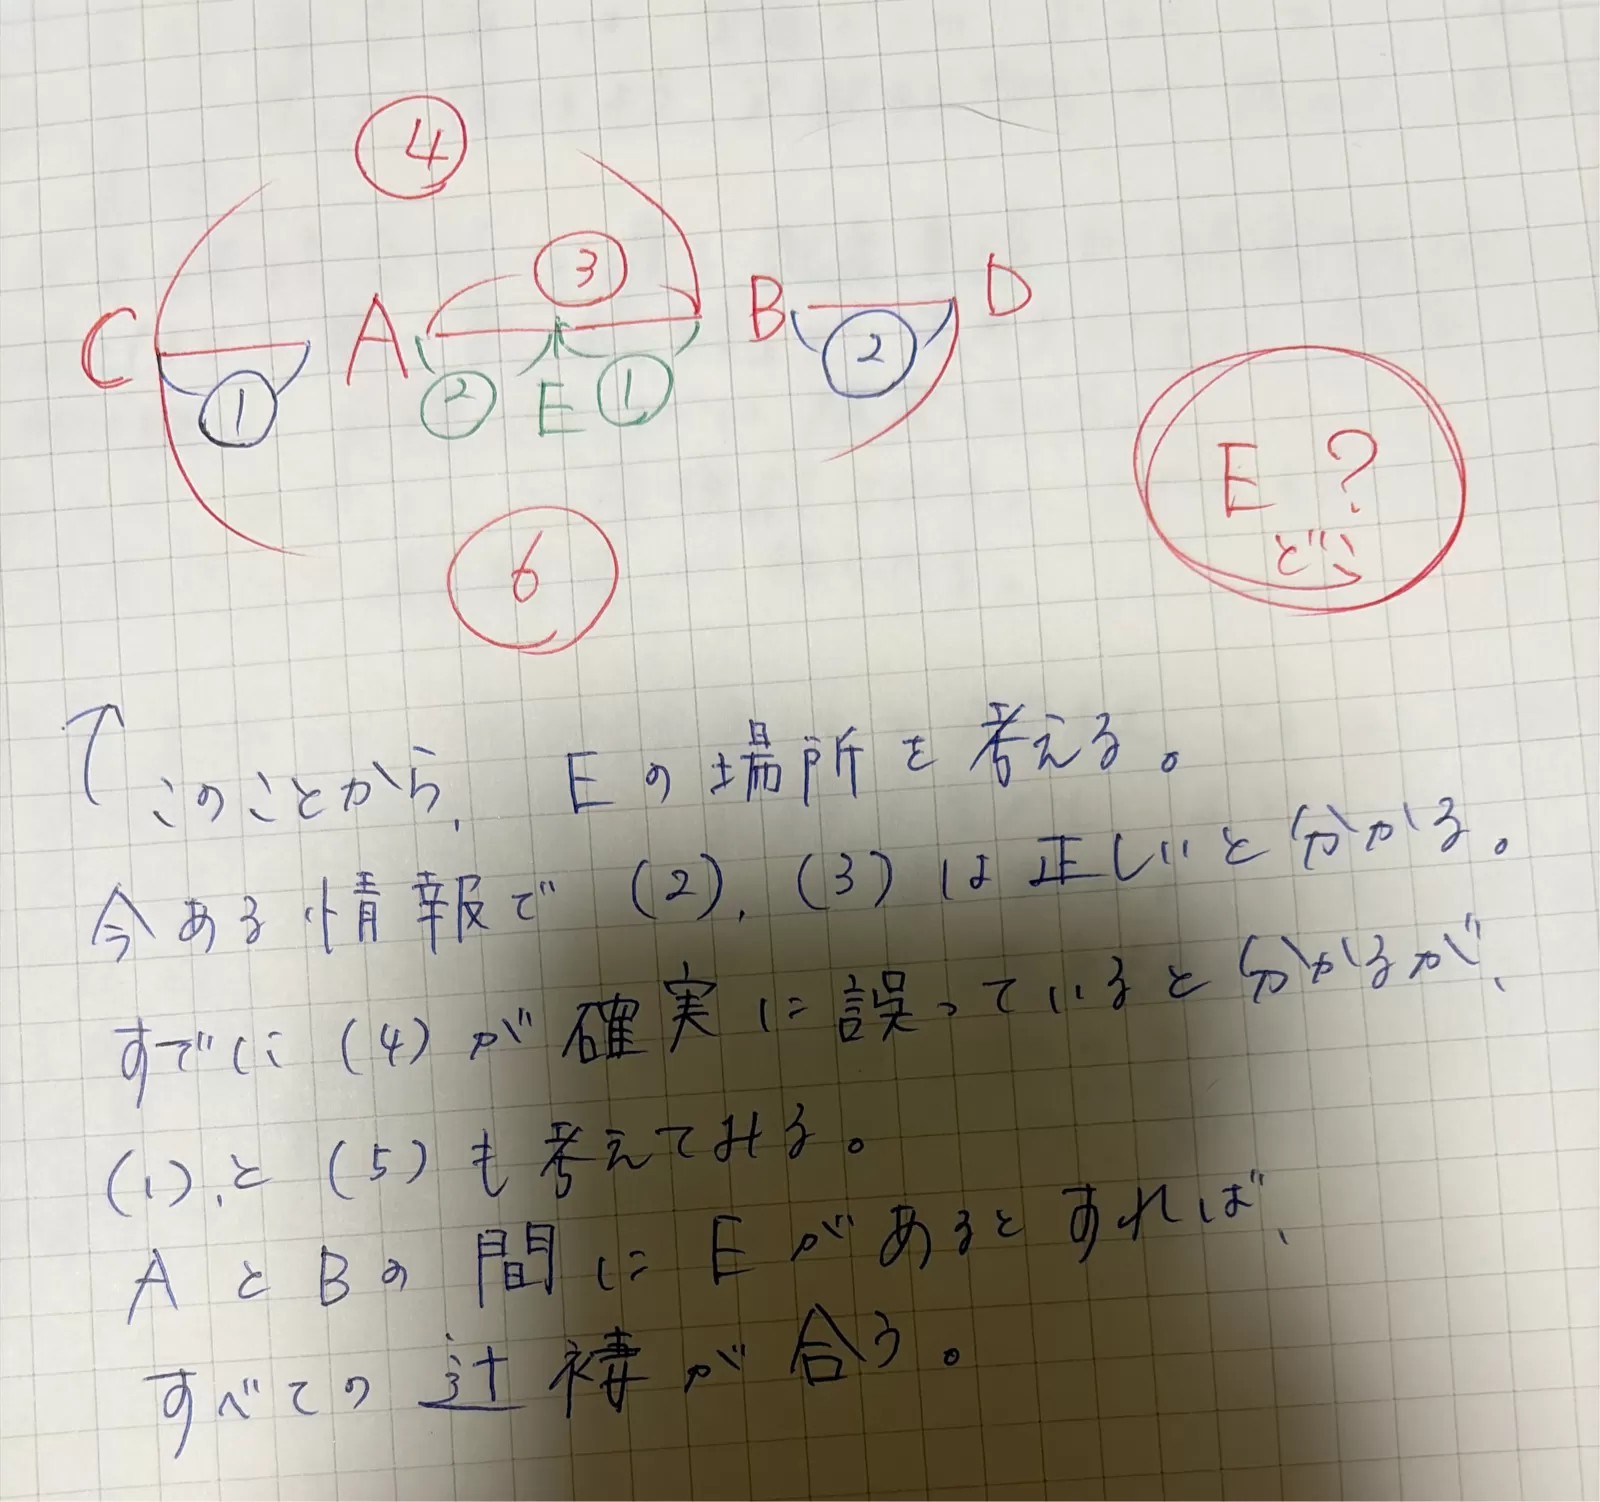 ④
③
C A B D
① ② E ① ②
⑥
E ?
どこ
↑このことから、Eの場所を考える。
今ある情報で(2),(3)は正しいと分かる。
すでに(4)が確実に誤っていると分かるが、
(1),と(5)も考えてみる。
AとBの間にEがあるとすれば、
すべての辻褄が合う。